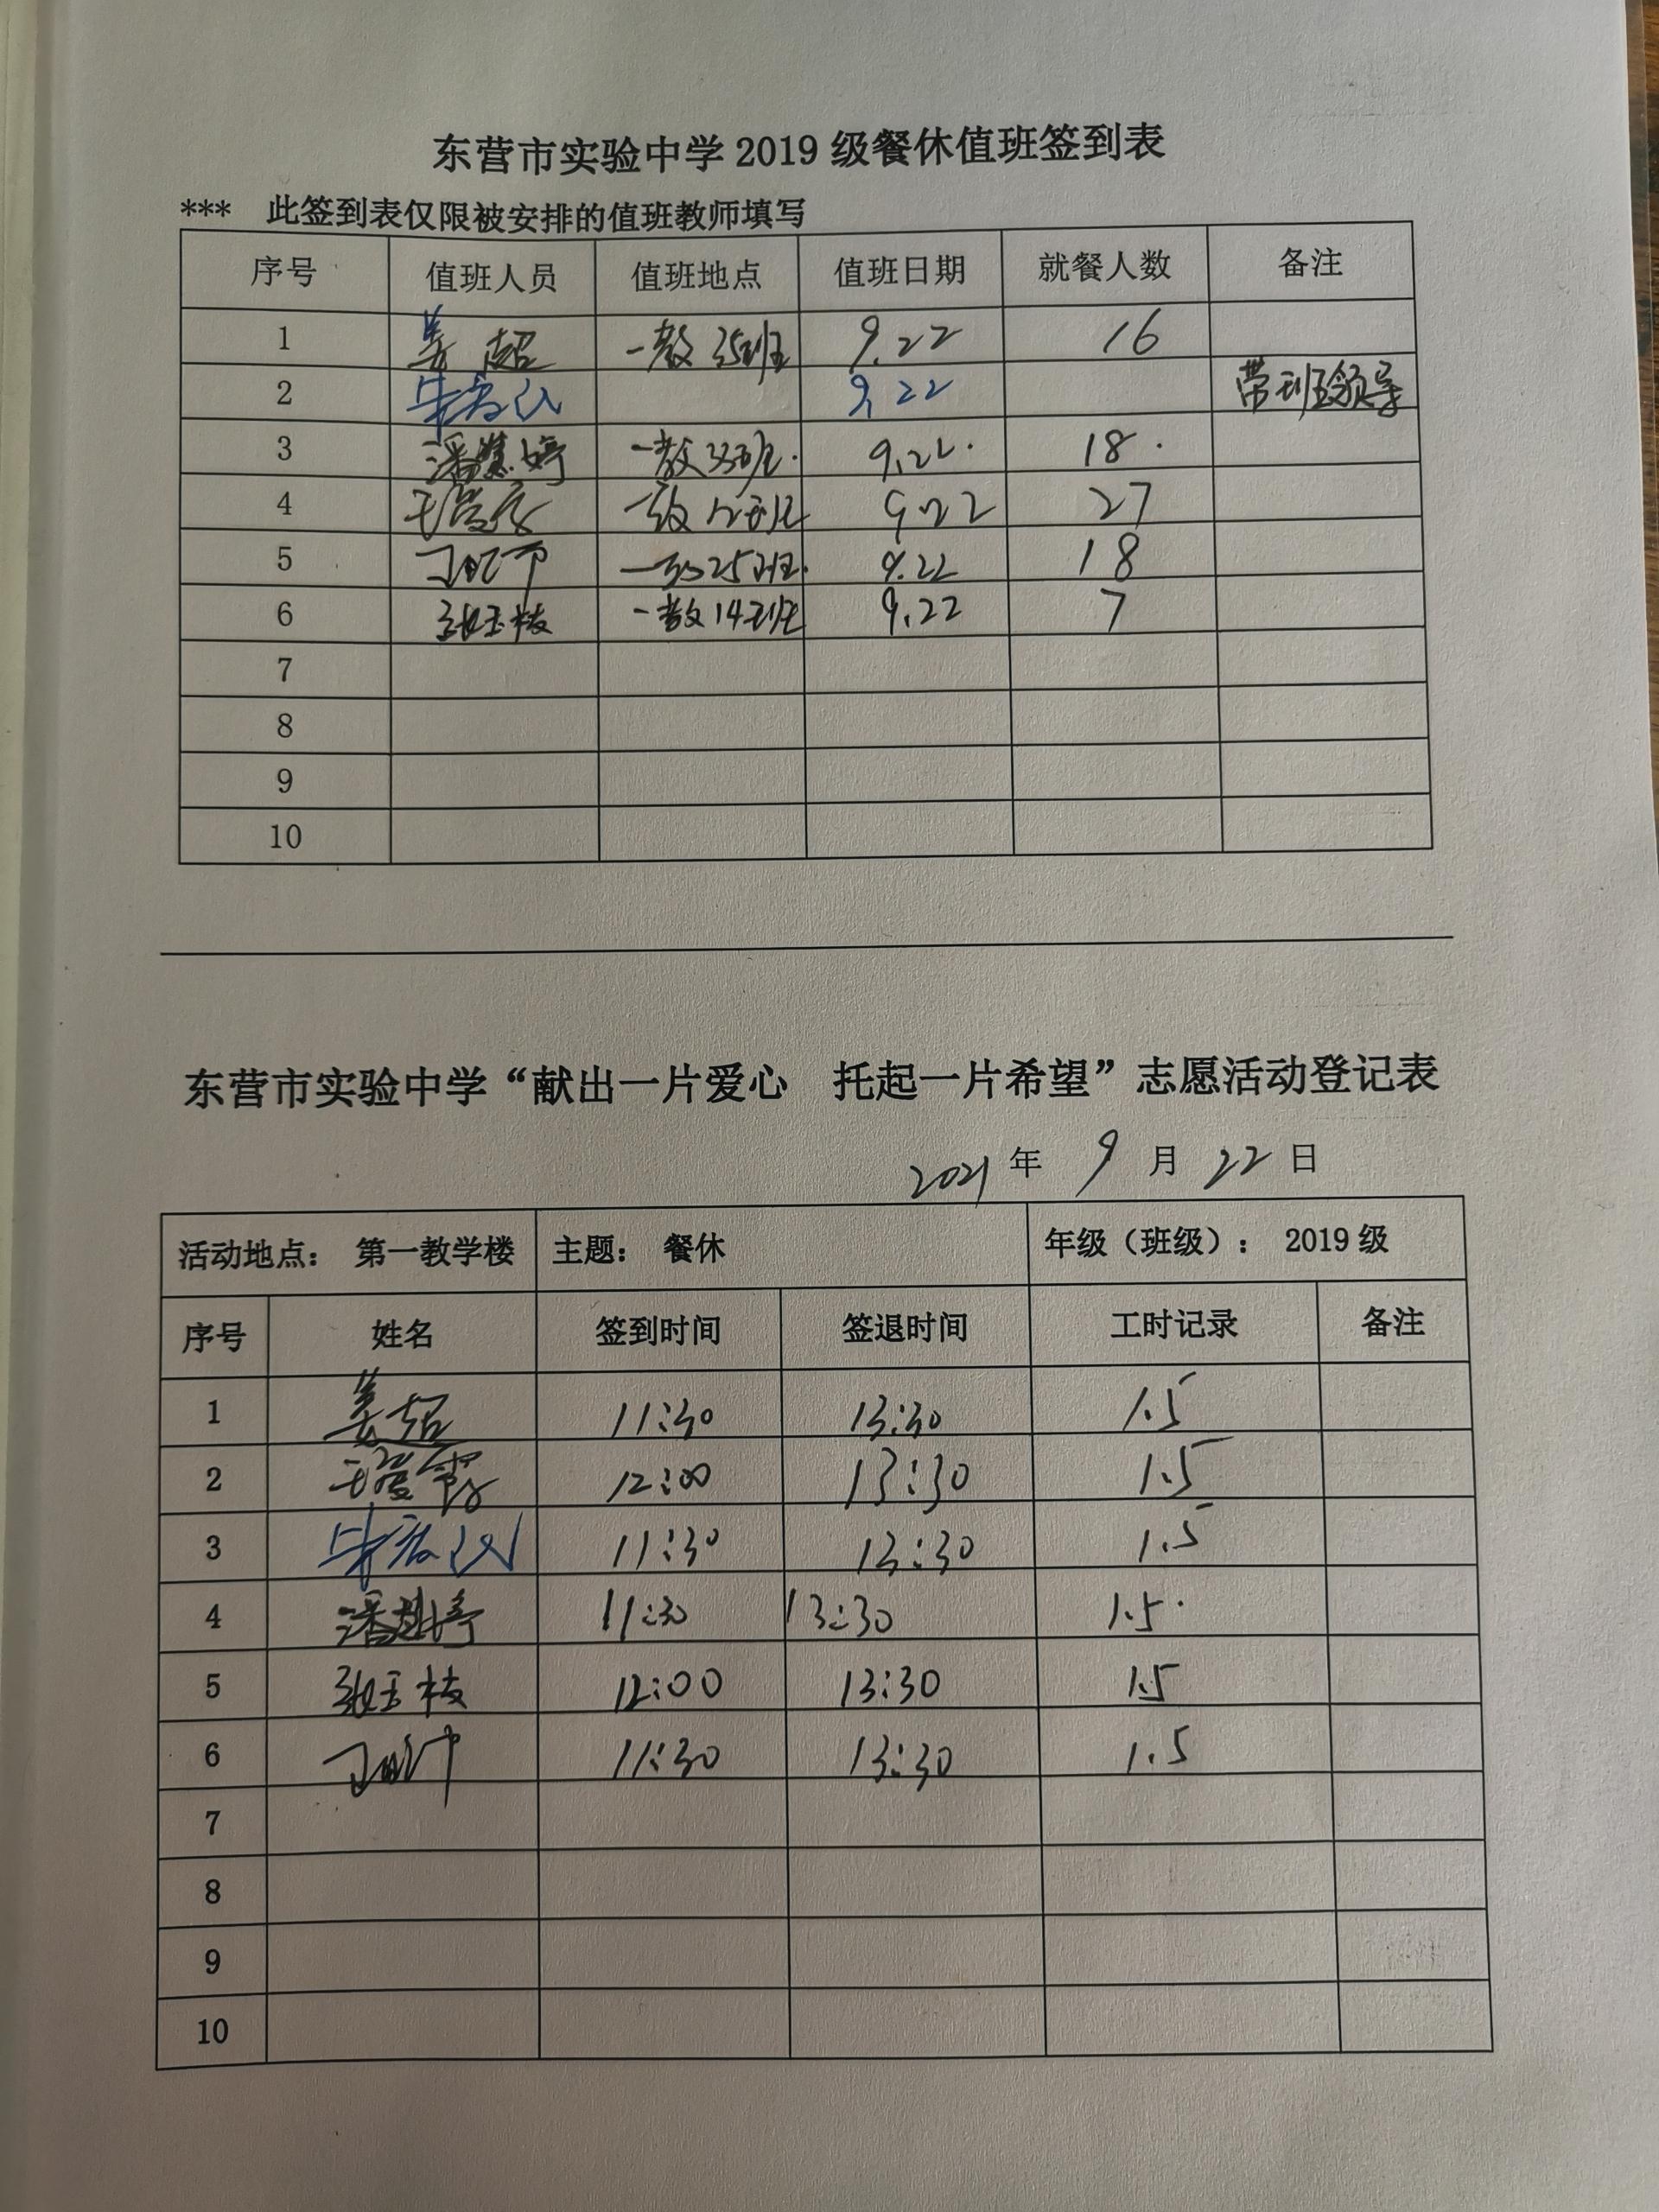 东营市实验中学 2019 级餐休值班签到表
*** 此签到表仅限被安排的值班教师填写
序号 值班人员 值班地点 值班日期 就餐人数 备注
1 姜超 一教35班 9.22 16
2 9.22 带班领导
3 潘慧婷 一教33班. 9.22. 18.
4 一教12班 9.22 27
5 一教25班. 9.22 18
6 张玉枝 一教14班 9.22 7
7
8
9
10
东营市实验中学“献出一片爱心 托起一片希望”志愿活动登记表
2021 年 9 月 22 日
活动地点： 第一教学楼 主题： 餐休 年级（班级）： 2019 级
序号 姓名 签到时间 签退时间 工时记录 备注
1 姜超 11:30 13:30 1.5
2 12:00 13:30 1.5
3 11:30 13:30 1.5
4 潘慧婷 11:30 13:30 1.5.
5 张玉枝 12:00 13:30 1.5
6 11:30 13:30 1.5
7
8
9
10